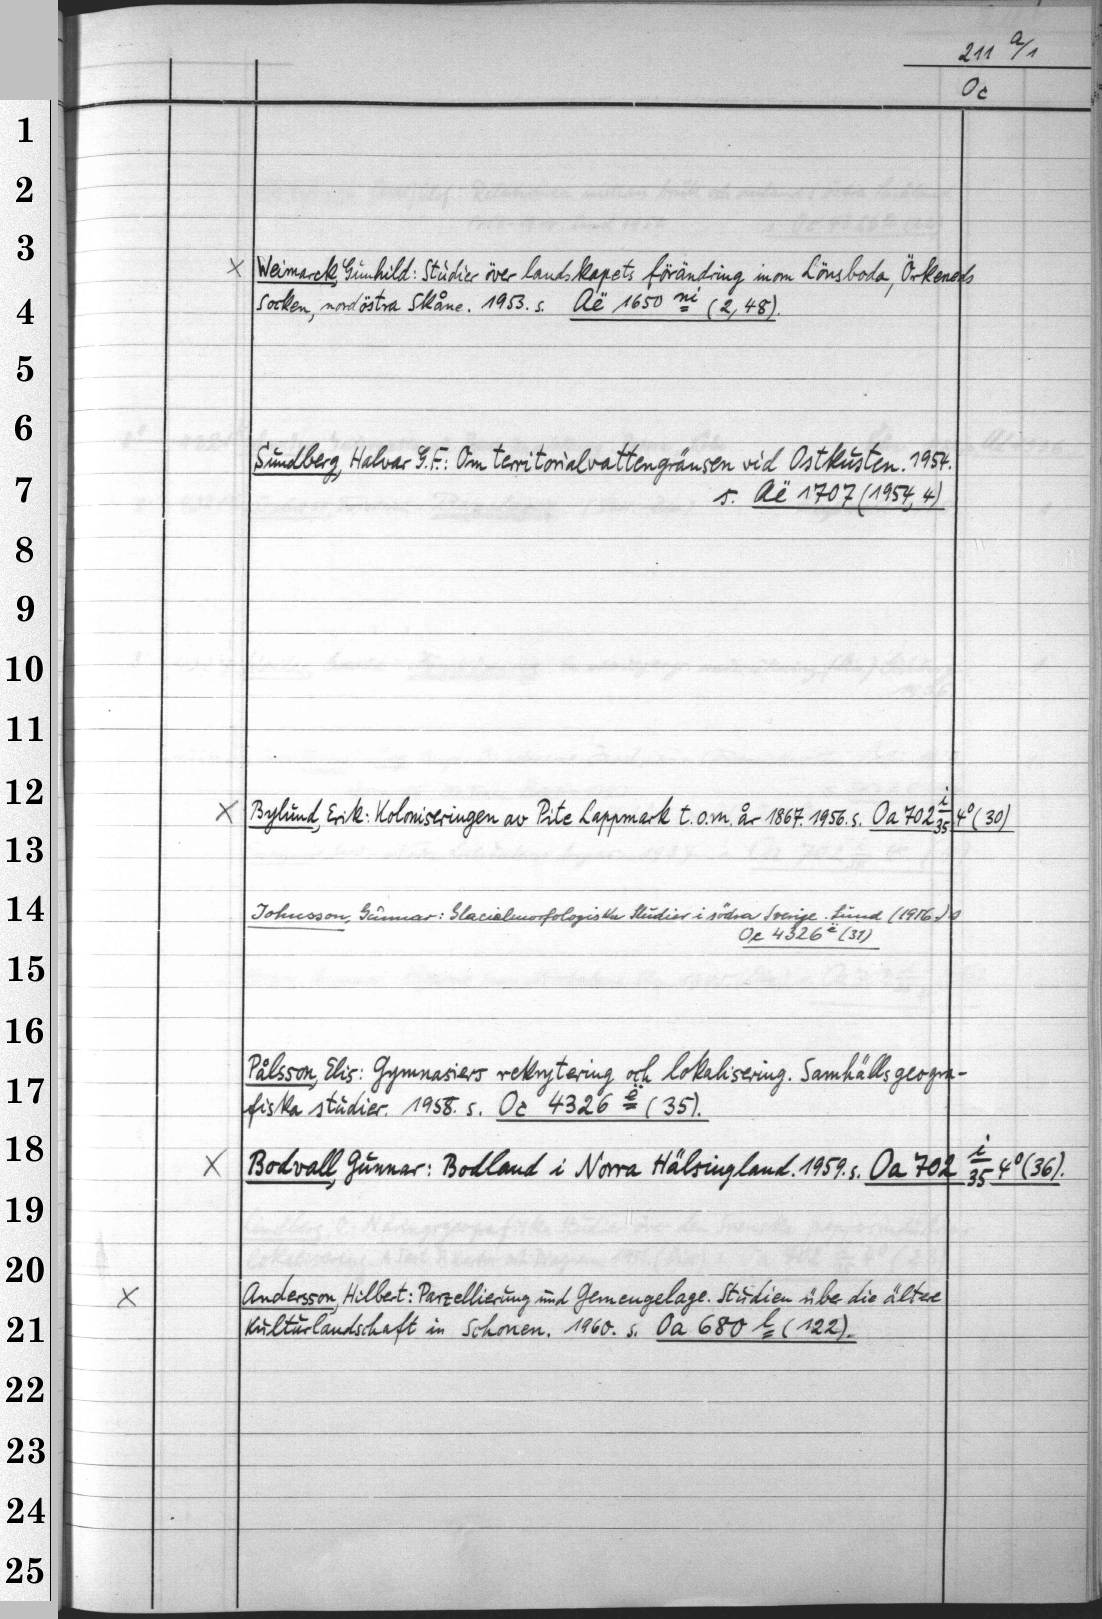 211 a/1
Oc
1
2
3
× Weimarck, Gunhild: Studier över landskapets förändring inom Lönsboda, Örkeneds
4
socken, nordöstra Skåne. 1953. s. Aë 1650 ni (2, 48).
5
6
Sundberg, Halvar G.F.: Om territorialvattengränsen vid Ostkusten. 1954.
7
s. Aë 1707 (1954, 4)
8
9
10
11
12
× Bylund, Erik: Koloniseringen av Pite Lappmark t.o.m. år 1867. 1956. s. Oa 702 i/35 4° (30)
13
14
Johnsson, Gunnar: Glacialmorfologiska Studier i södra Sverige. Lund (1956.) s
Oc 4326 ë (31)
15
16
Pålsson, Elis: Gymnasiers rekrytering och lokalisering. Samhällsgeogra-
17
fiska studier. 1958. s. Oc 4326 ë (35).
18
× Bodvall, Gunnar: Bodland i Norra Hälsingland. 1959. s. Oa 702 i/35 4° (36).
19
20
× Andersson, Hilbert: Parzellierung und Gemengelage. Studien über die ältere
21
Kulturlandschaft in Schonen. 1960. s. Oa 680 l (122).
22
23
24
25